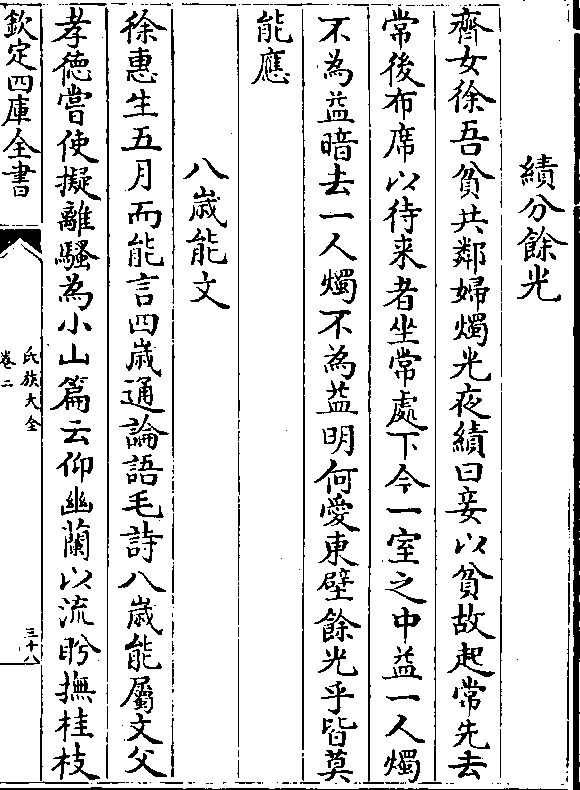 績分餘光
齊女徐吾貧共鄰婦燭光夜績曰妾以貧故起常先去
常後布席以待来者坐常處下今一室之中益一人燭
不為益暗去一人燭不為益明何愛東壁餘光乎皆莫
能應
八歲能文
徐惠生五月而能言四歲通論語毛詩八歲能屬文父
孝德嘗使擬離騷為小山篇云仰幽蘭以流盻撫桂枝
欽定四庫全書
氏族大全
卷二
三十八